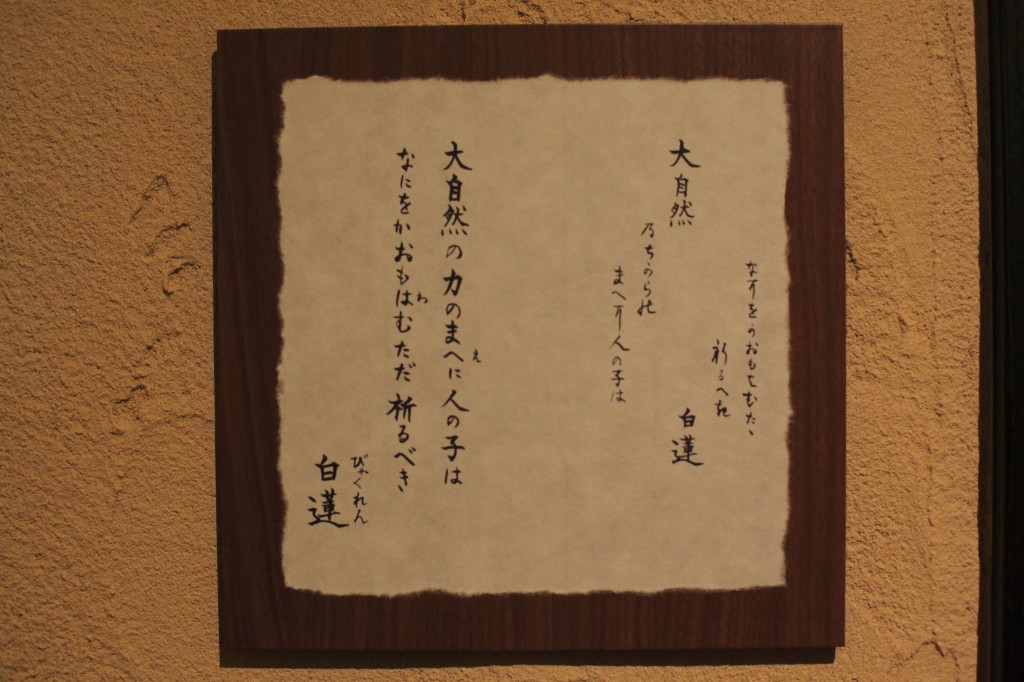 大自然
乃ちからの
まへ尓人の子は
な尓をかおもはむたゝ
祈るへき
白蓮
大自然の力のまへに人の子は
え
なにをかおもはむただ祈るべき
わ
びゃくれん
白蓮